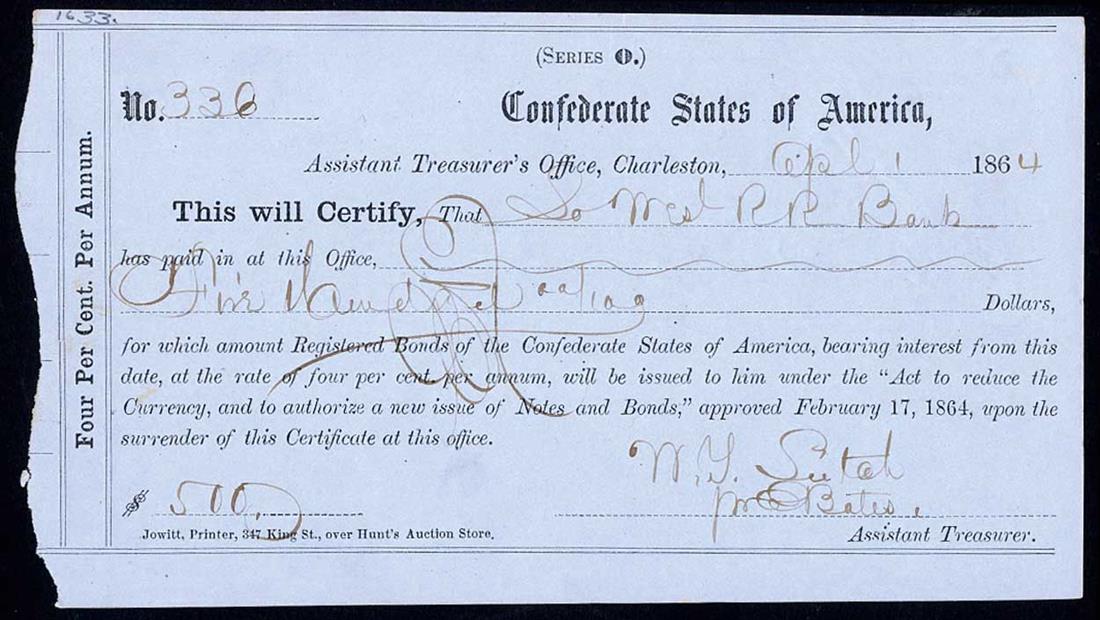 1633.
(SERIES O.)
No. 336 Confederate States of America,
Assistant Treasurer's Office, Charleston, Apl 1 1864
This will Certify, That So West R R Bank
has paid in at this Office,
Five Hundred 00/100 Dollars,
for which amount Registered Bonds of the Confederate States of America, bearing interest from this
date, at the rate of four per cent. per annum, will be issued to him under the “Act to reduce the
Currency, and to authorize a new issue of Notes and Bonds,” approved February 17, 1864, upon the
surrender of this Certificate at this office.
W. Y.
$ 500. Bates.
Jowitt, Printer, 347 King St., over Hunt's Auction Store. Assistant Treasurer.
Four Per Cent. Per Annum.